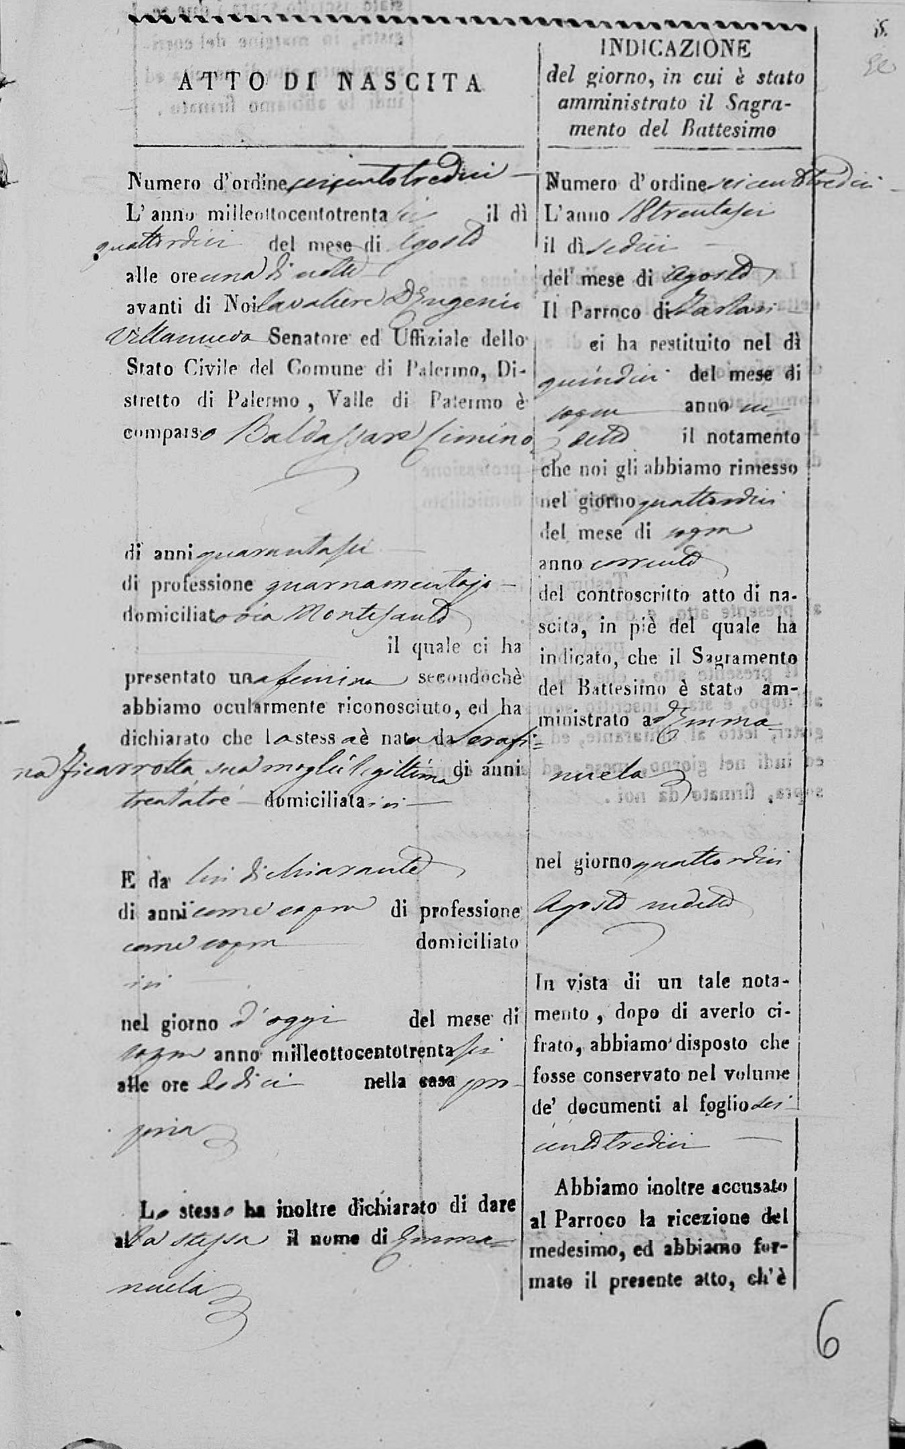 ATTO DI NASCITA
Numero d'ordine seicentotredici
L'anno milleottocentotrenta sei il dì
quattordici del mese di Agosto
alle ore una di notte
avanti di Noi Cavaliere D. Eugenio
Villanueva Senatore ed Uffiziale dello
Stato Civile del Comune di Palermo, Di-
stretto di Palermo, Valle di Palermo è
comparso Baldassare Cimino
di anni quarantasei
di professione guarnamentajo
domiciliato via Montesanto
il quale ci ha
presentato una femina secondochè
abbiamo ocularmente riconosciuto, ed ha
dichiarato che la stessa è nata da Serafi-
na Ficarrotta sua moglie legittima di anni
trentatre domiciliata ivi
E da lui dichiarante
di anni come sopra di professione
come sopra domiciliato
ivi
nel giorno d'oggi del mese di
sopra anno milleottocentotrenta sei
alle ore dodici nella casa pro-
pria
Lo stesso ha inoltre dichiarato di dare
alla stessa il nome di Emma-
nuela
INDICAZIONE
del giorno, in cui è stato
amministrato il Sagra-
mento del Battesimo
Numero d'ordine seicentotredici
L'anno 18trentasei
il dì sedici
del mese di Agosto
Il Parroco di
ci ha restituito nel dì
quindici del mese di
sopra anno su-
detto il notamento
che noi gli abbiamo rimesso
nel giorno quattordici
del mese di sopra
anno corrente
del controscritto atto di na-
scita, in piè del quale ha
indicato, che il Sagramento
del Battesimo è stato am-
ministrato ad Emma-
nuela
nel giorno quattordici
Agosto sudetto
In vista di un tale nota-
mento, dopo di averlo ci-
frato, abbiamo disposto che
fosse conservato nel volume
de' documenti al foglio sei-
centotredici
Abbiamo inoltre accusato
al Parroco la ricezione del
medesimo, ed abbiamo for-
mato il presente atto, ch'è
6